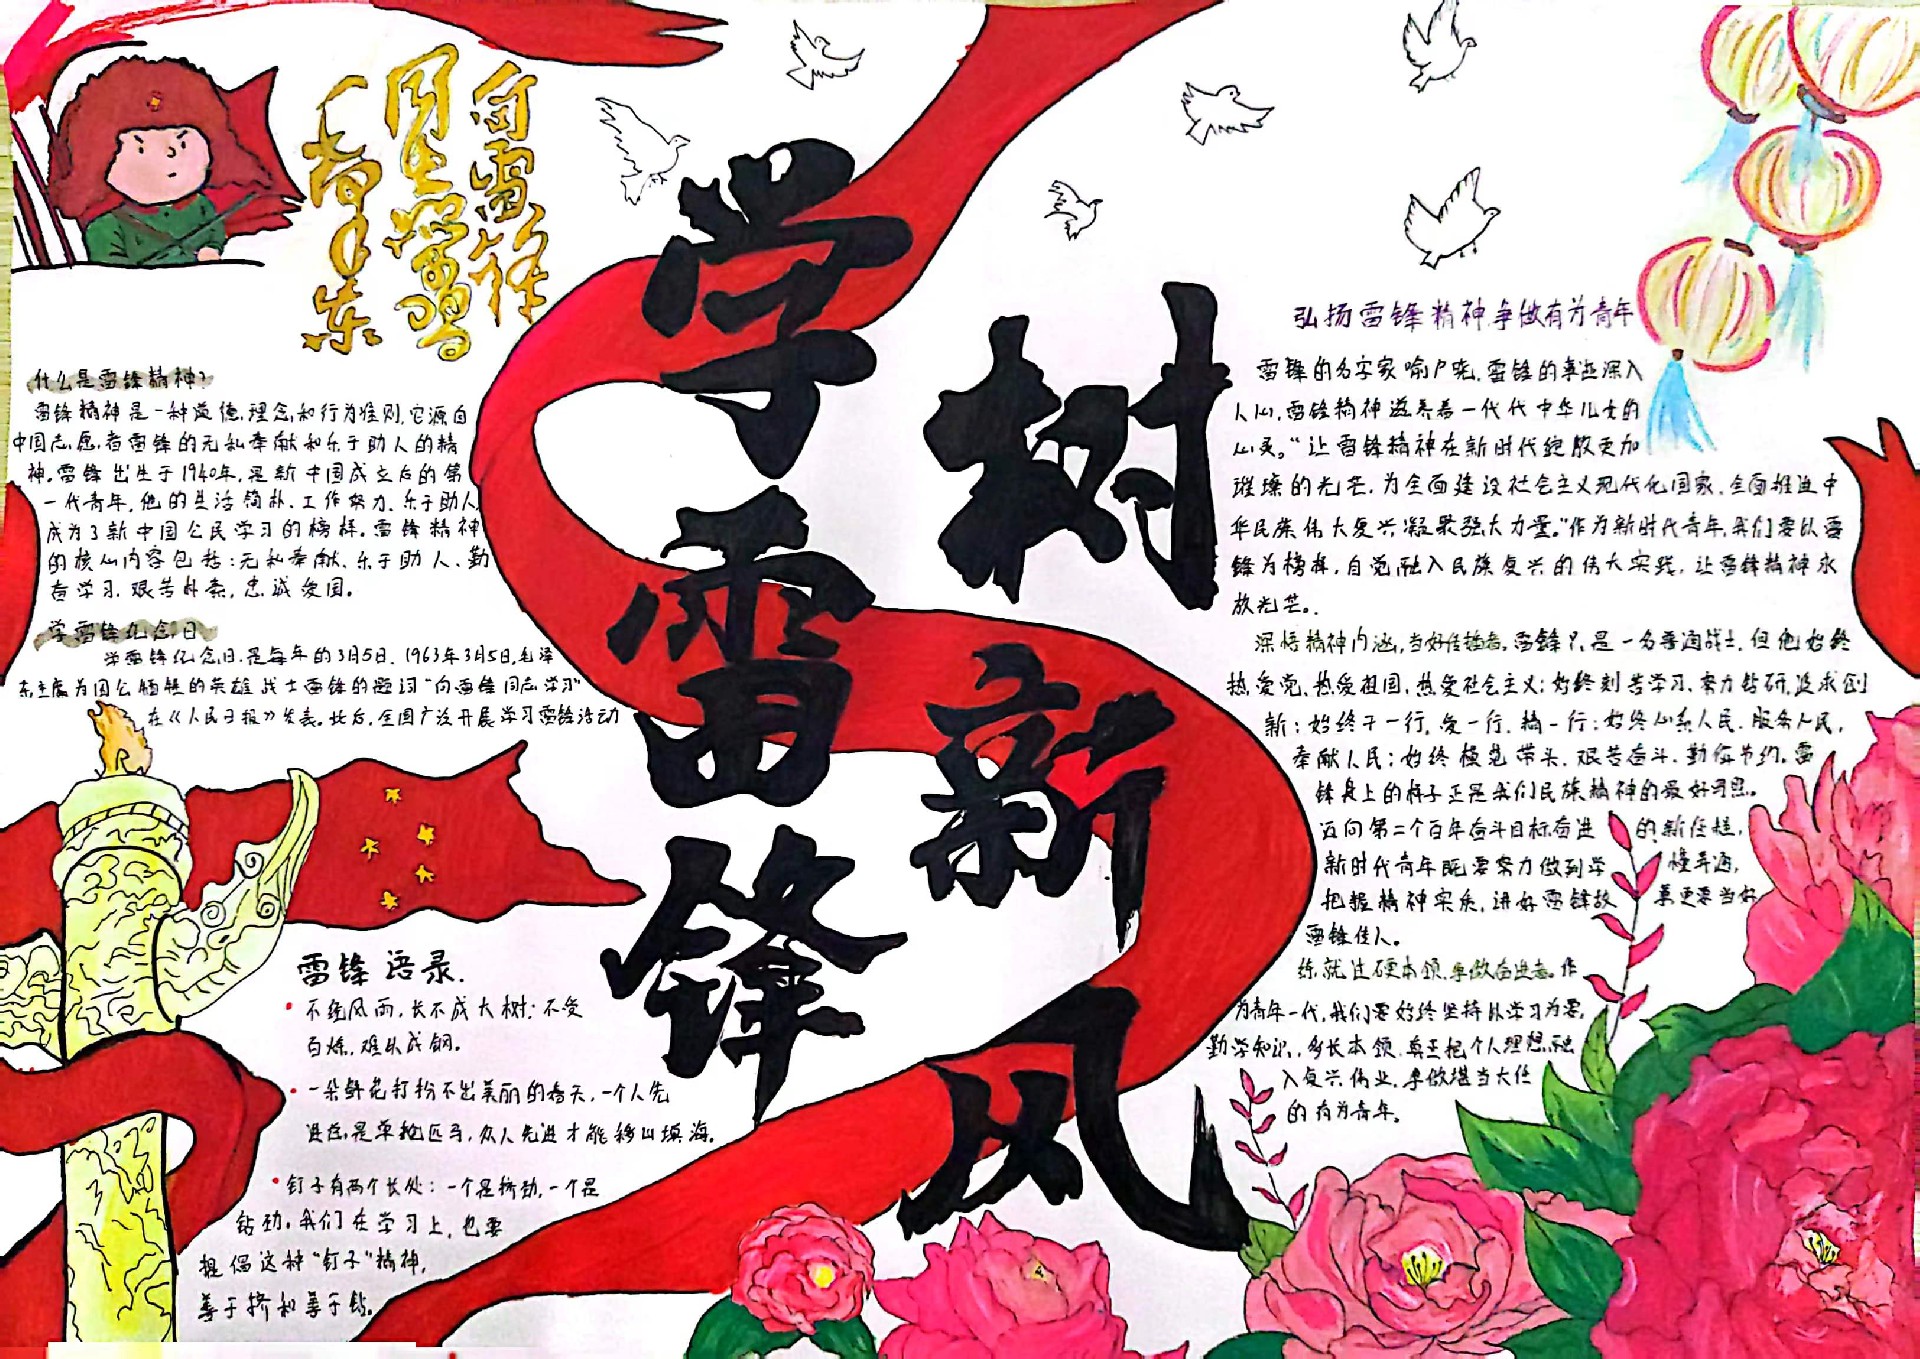 向雷锋
同志学习
毛泽东
学雷锋
树新风
什么是雷锋精神?
雷锋精神是一种道德,理念和行为准则,它源自
中国志愿者雷锋的无私奉献和乐于助人的精
神。雷锋出生于1940年,是新中国成立后的第
一代青年,他的生活简朴、工作努力、乐于助人
成为了新中国公民学习的榜样。雷锋精神
的核心内容包括:无私奉献、乐于助人、勤
奋学习、艰苦朴素,忠诚爱国。
学雷锋纪念日
学雷锋纪念日,是每年的3月5日,1963年3月5日,毛泽
东主席为因公牺牲的英雄战士雷锋的题词“向雷锋同志学习”
在《人民日报》发表。此后,全国广泛开展学习雷锋活动
雷锋语录.
不经风雨,长不成大树;不受
百炼,难以成钢。
一朵鲜花打扮不出美丽的春天,一个人先
进总是单枪匹马,众人先进才能移山填海。
钉子有两个长处:一个是挤劲,一个是
钻劲。我们在学习上,也要
提倡这种“钉子”精神,
善于挤和善于钻。
弘扬雷锋精神,争做有为青年
雷锋的名字家喻户晓,雷锋的事迹深入
人心,雷锋精神滋养着一代代中华儿女的
心灵。“让雷锋精神在新时代绽放更加
璀璨的光芒,为全面建设社会主义现代化国家,全面推进中
华民族伟大复兴凝聚强大力量。”作为新时代青年,我们要以雷
锋为榜样,自觉融入民族复兴的伟大实践,让雷锋精神永
放光芒。
深悟精神内涵,当好传播者。雷锋只是一名普通战士,但他始终
热爱党、热爱祖国、热爱社会主义;始终刻苦学习、努力钻研,追求创
新;始终干一行,爱一行,精一行;始终心系人民、服务人民,
奉献人民;始终模范带头、艰苦奋斗、勤俭节约。雷
锋身上的样子正是我们民族精神的最好写照。
迈向第二个百年奋斗目标奋进的新征程,
新时代青年既要努力做到学懂弄通,
把握精神实质,讲好雷锋故事更要当好
雷锋传人。
练就过硬本领,争做奋进者。作
为青年一代,我们要始终坚持以学习为要,
勤学知识,多长本领,真正把个人理想融
入复兴伟业,争做堪当大任
的有为青年。